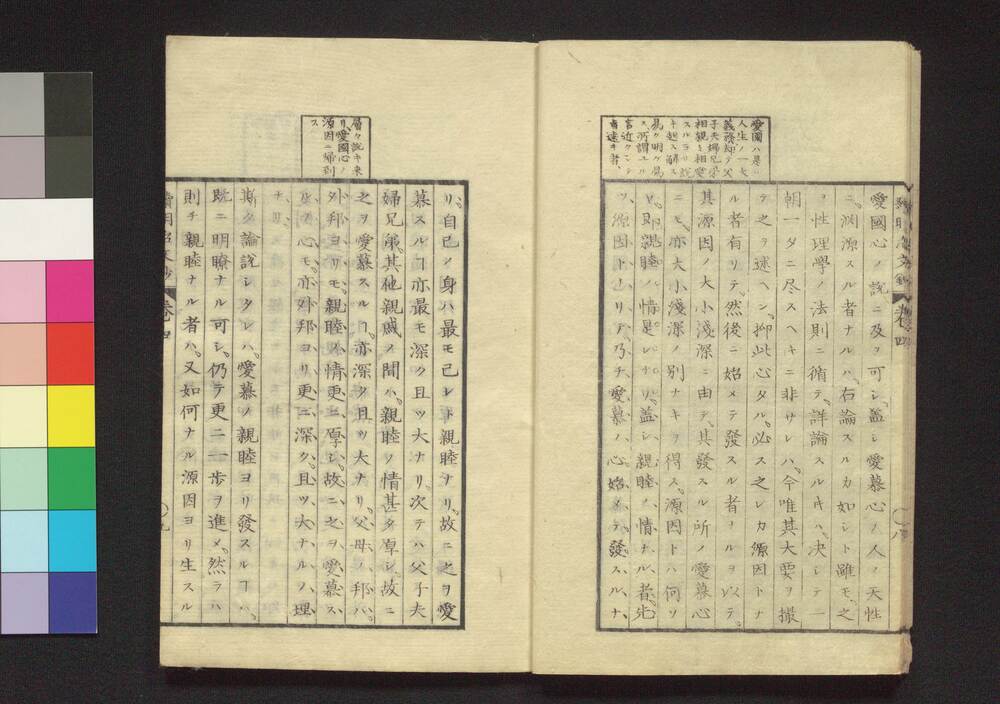 愛國ハ是レ
人生ノ一大
義務即チ父
子夫婦兄弟
相親ミ相愛
スルヨリ説
キ起ス解ス
易ク明ケ易
ス所謂ユル
言近クシテ
旨遠キ者、
愛國心ノ說ニ及フ可シ、蓋シ愛慕心ノ人ノ天性
ニ、淵源スル者ナルハ、右論スルカ如シト雖モ、之
ヲ性理學ノ法則ニ循テ、詳論スル片ハ、決シテ一
朝一タニ尽スヘキニ非サレハ、今唯其大要ヲ撮
テ之ヲ述ヘン、抑此心タル、必ス之レカ源因トナ
ル者有リテ、然後ニ始メテ發スル者ナルヲ以テ、
其源因ノ大小淺深ニ由テ、其發スル所ノ愛慕心
ニモ、亦大小淺深ノ別ナキヲ得ス、源因トハ何ソ
ヤ、即親睦ノ情是レナリ、蓋シ、親睦ノ情ナル者、先
ツ、源因トナリテ、乃チ、愛慕ノ心、始メテ發スルナ、
卷四
八
層々說キ来
リ愛國心ノ
源因ニ歸到
ス
リ、自己ノ身ハ最モ己レト親睦ナリ、故ニ之ヲ愛
慕スルヿ亦最モ深ク且ツ大ナリ、次テハ父子夫
婦兄弟、其他親戚ノ間ハ、親睦ノ情甚タ厚シ、故ニ
之ヲ愛慕スルヿ、亦深ク且ツ大ナリ、父母ノ邦ハ、
外邦ヨリモ、親睦ノ情更ニ厚シ、故ニ之ヲ愛慕ス
ル心モ、亦外邦ヨリ更ニ深ク、且ツ大ナルノ理
ナリ、
斯ク論說シタレハ、愛慕ノ親睦ヨリ發スルヿハ、
既ニ明瞭ナル可シ、仍テ更ニ一歩ヲ進メ、然ラハ
則チ親睦ナル者ハ、又如何ナル源因ヨリ生スル
卷四
九